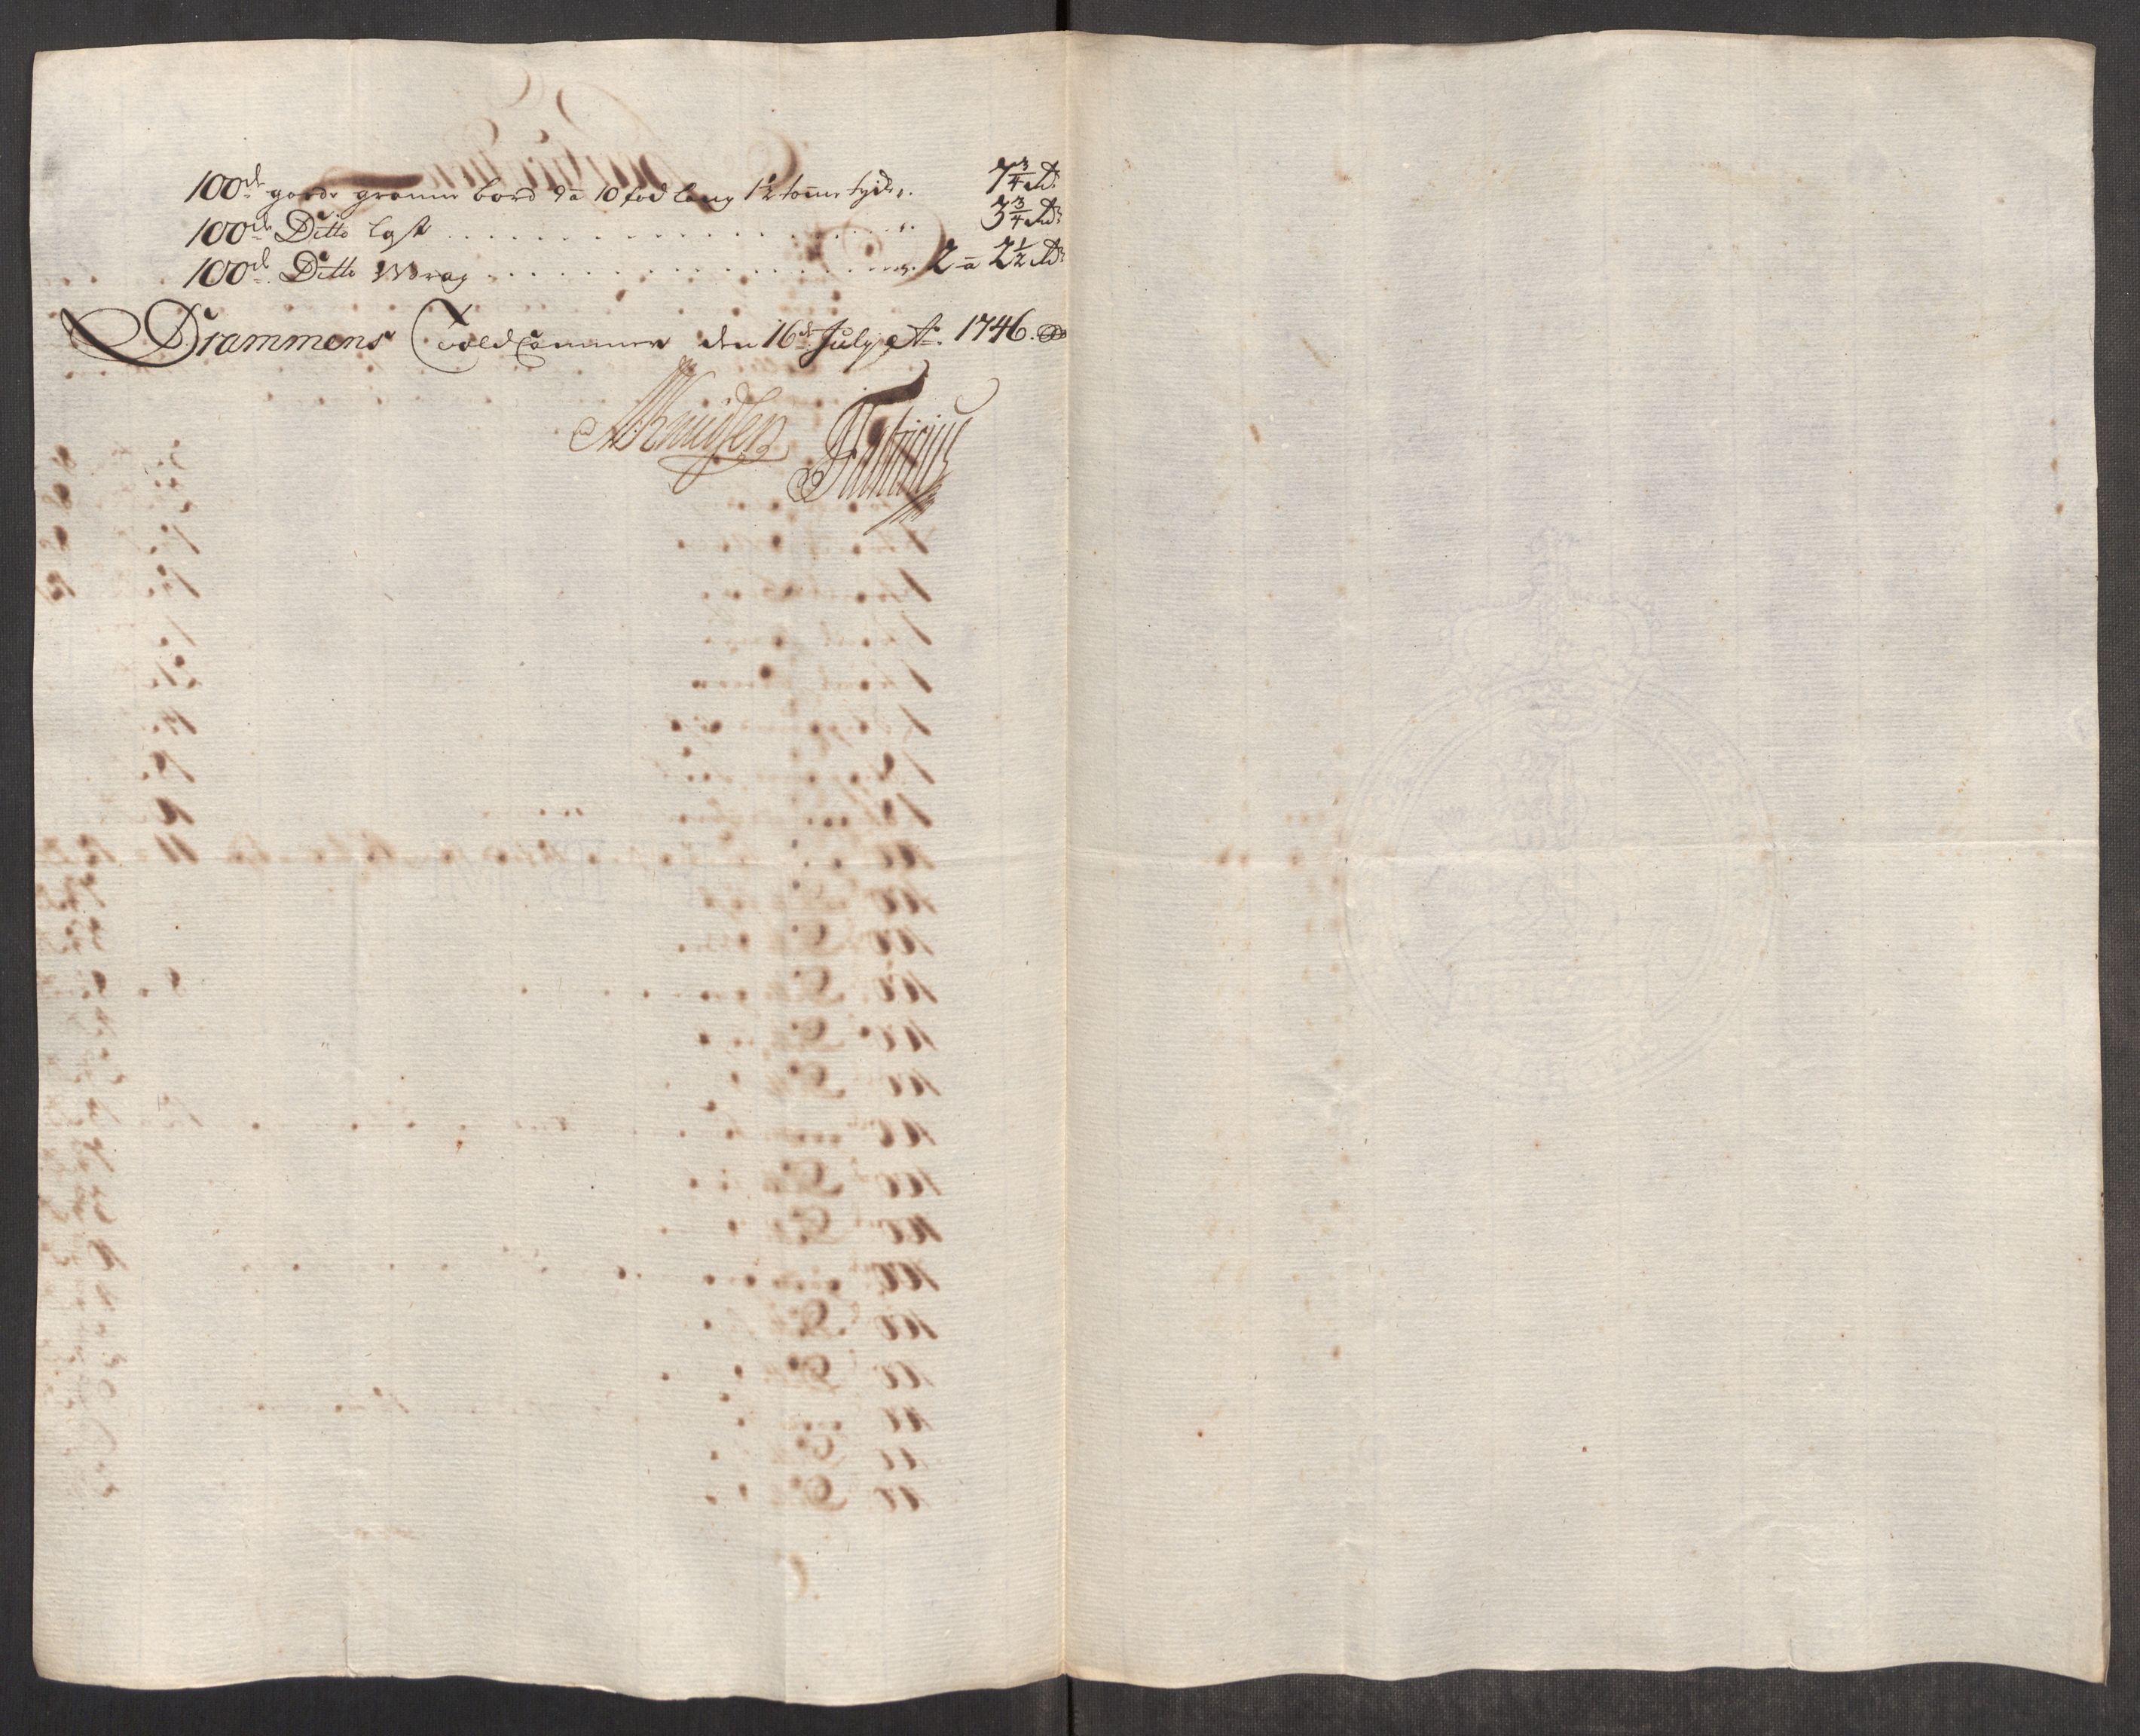 100de goede græner bord 9 a 10 fod lang 1½ tomer tyk ". 7¾ Rdr
100de Ditto last . . . . . . . . . . . . ". 3¾ Rdr
100de Ditto Wrag . . . . . . . . . . . . ". 2 a 2½ Rdr
Drammens Told Cammer den 16de July Ao. 1746.
Knudsen Fabricius